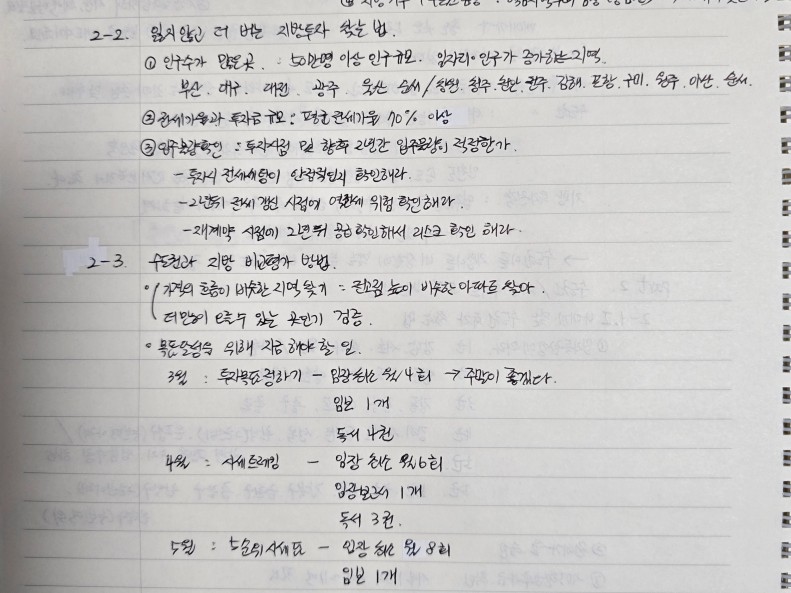 2-2. 잃지않고 더 버는 지방투자 찾는 법.
① 인구수가 많은곳 : 50만명 이상 인구규모. 일자리·인구가 증가하는지역.
부산. 대구. 대전. 광주. 울산. 순서/창원. 청주. 천안. 전주. 김해. 포항. 구미. 원주. 아산. 순서.
② 전세가율과 투자금 규모 : 평균 전세가율 70% 이상
③ 입주물량확인 : 투자시점 및 향후 2년간 입주물량이 적정한가.
- 투자시 전세세팅이 안정적인지 확인해라.
- 2년뒤 전세 갱신 시점에 역전세 위험 확인해라.
- 재계약 시점이 2년뒤 공급확인해서 리스크 확인 해라.
2-3. 수도권과 지방 비교평가 방법.
• 가격의 흐름이 비슷한 지역 찾기 : 전고점 높이 비슷한 아파트 찾아
더많이 오를수 있는 곳인지 검증.
• 목표달성을 위해 지금 해야 할 일.
3월 : 투자목표정하기 - 임장 최소 월 4회 → 주말이 좋겠다.
임보 1개
독서 4권
4월 : 시세트레킹 - 임장 최소 월 6회
임장보고서 1개
독서 3권.
5월 : 5순위시세표 - 임장 최소 월 8회
임보 1개